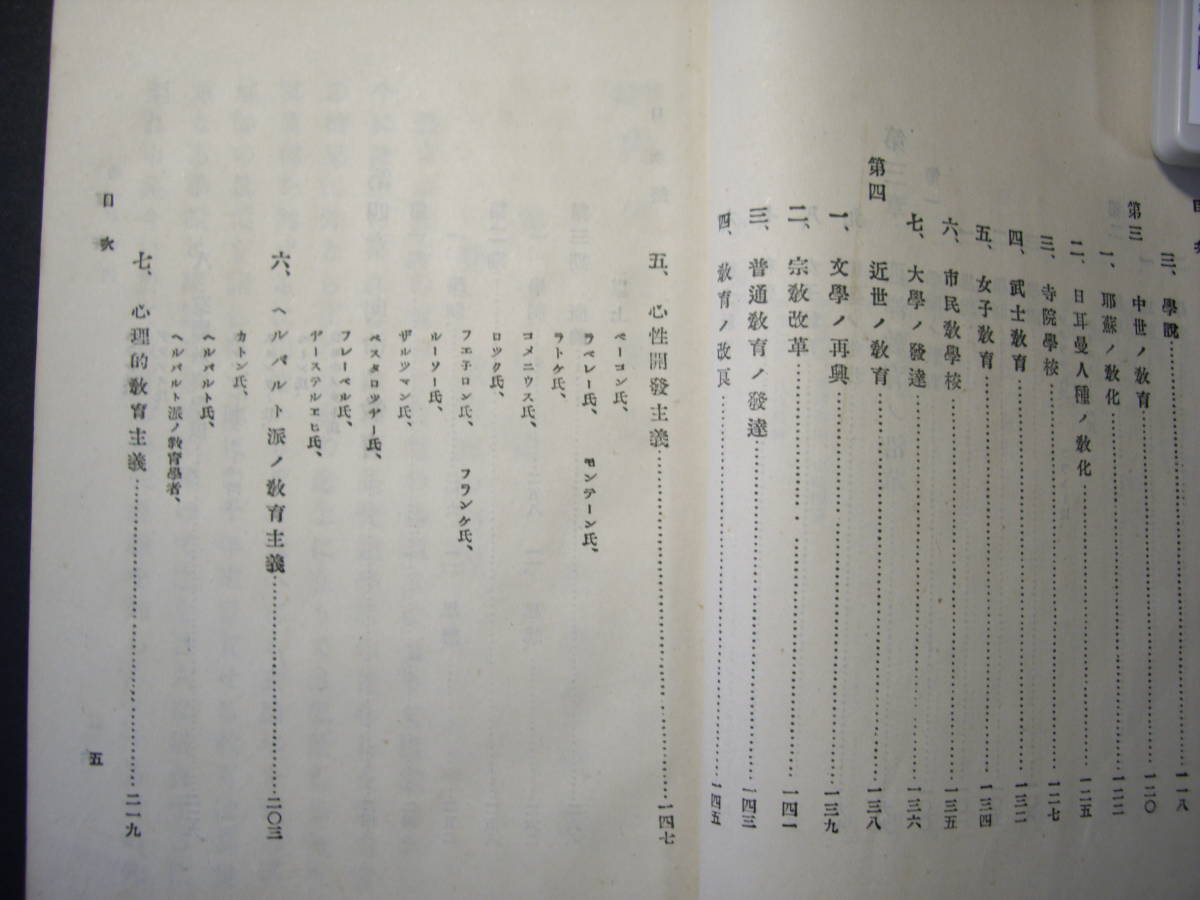 三、學說……………一一八
第三　中世ノ敎育……………一二〇
一、耶蘇ノ敎化……………一二二
二、日耳曼人種ノ敎化……………一二五
三、寺院學校……………一二七
四、武士敎育……………一三二
五、女子敎育……………一三四
六、市民敎學校……………一三五
七、大學ノ發達……………一三六
第四　近世ノ敎育……………一三八
一、文學ノ再興……………一三九
二、宗敎改革……………一四一
三、普通敎育ノ發達……………一四三
四、敎育ノ改良……………一四五
五、心性開發主義……………一四七
ベーコン氏、
ラベレー氏、モンテーン氏、
ラトケ氏、
コメニウス氏、
ロツク氏、
フエ子ロン氏、フランケ氏、
ルーソー氏、
ザルツマン氏、
ペスタロツヂー氏、
フレーベル氏、
ヂーステルエヒ氏、
六、ヘルバルト派ノ敎育主義……………二〇三
カトン氏、
ヘルバルト氏、
ヘルバルト派ノ敎育學者、
七、心理的敎育主義……………二一九
目次
五